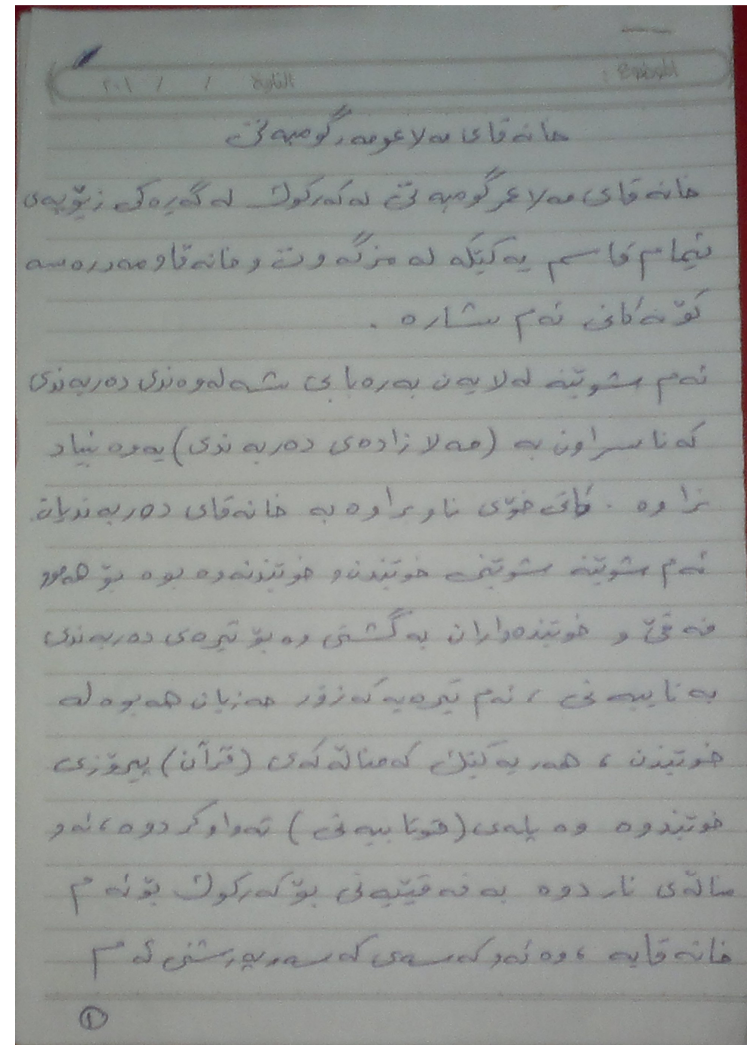 الموضوع :
التاريخ / / ٢٠١
خانەقای مەلا عومەر گومبەتی
خانەقای مەلا عمر گومبەتی لە کەرکوك لە گەڕەکی زێویەی
ئیمام قاسم یەکێکە لە مزگەوت و خانەقا و مەدرەسە
کۆنەکانی ئەم شارە .
ئەم شوێنە لەلایەن بەرەبابی شەلەوەندی دەربەندی
کە ناسراون بە (مەلا زادەی دەربەندی) یەوە بنیاد
نراوە . کاتی خۆی ناوبراوە بە خانەقای دەربەندیان.
ئەم شوێنە شوێنی خوێندن و خوێندنەوە بوە بۆ هەموو
فەقێ و خوێندەواران بەگشتی وە بۆ تیرەی دەربەندی
بە تایبەتی ، ئەم تیرەیە کە زۆر حەزیان هەبوە لە
خوێندن ، هەر یەکێك کە مناڵەکەی (قرآن) پیرۆزی
خوێندوە وە پلەی (قوتابیەتی) تەواو کردوە ، ئەو
مناڵەی ناردوە بە فەقێیەتی بۆ کەرکوك بۆ ئەم
خانەقایە ، وە ئەو کەسەی کە سەرپەرشتی ئەم
١